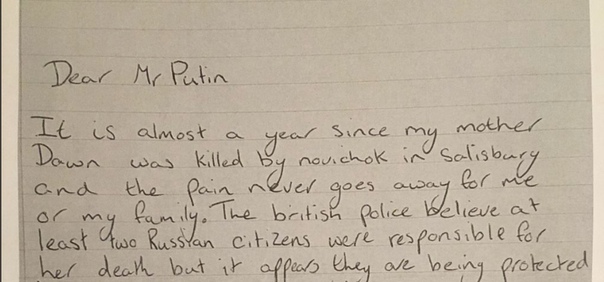 Dear Mr Putin
It is almost a year since my mother
Dawn was killed by novichok in Salisbury
and the pain never goes away for me
or my family. The british police believe at
least two Russian citizens were responsible for
her death but it appears they are being protected